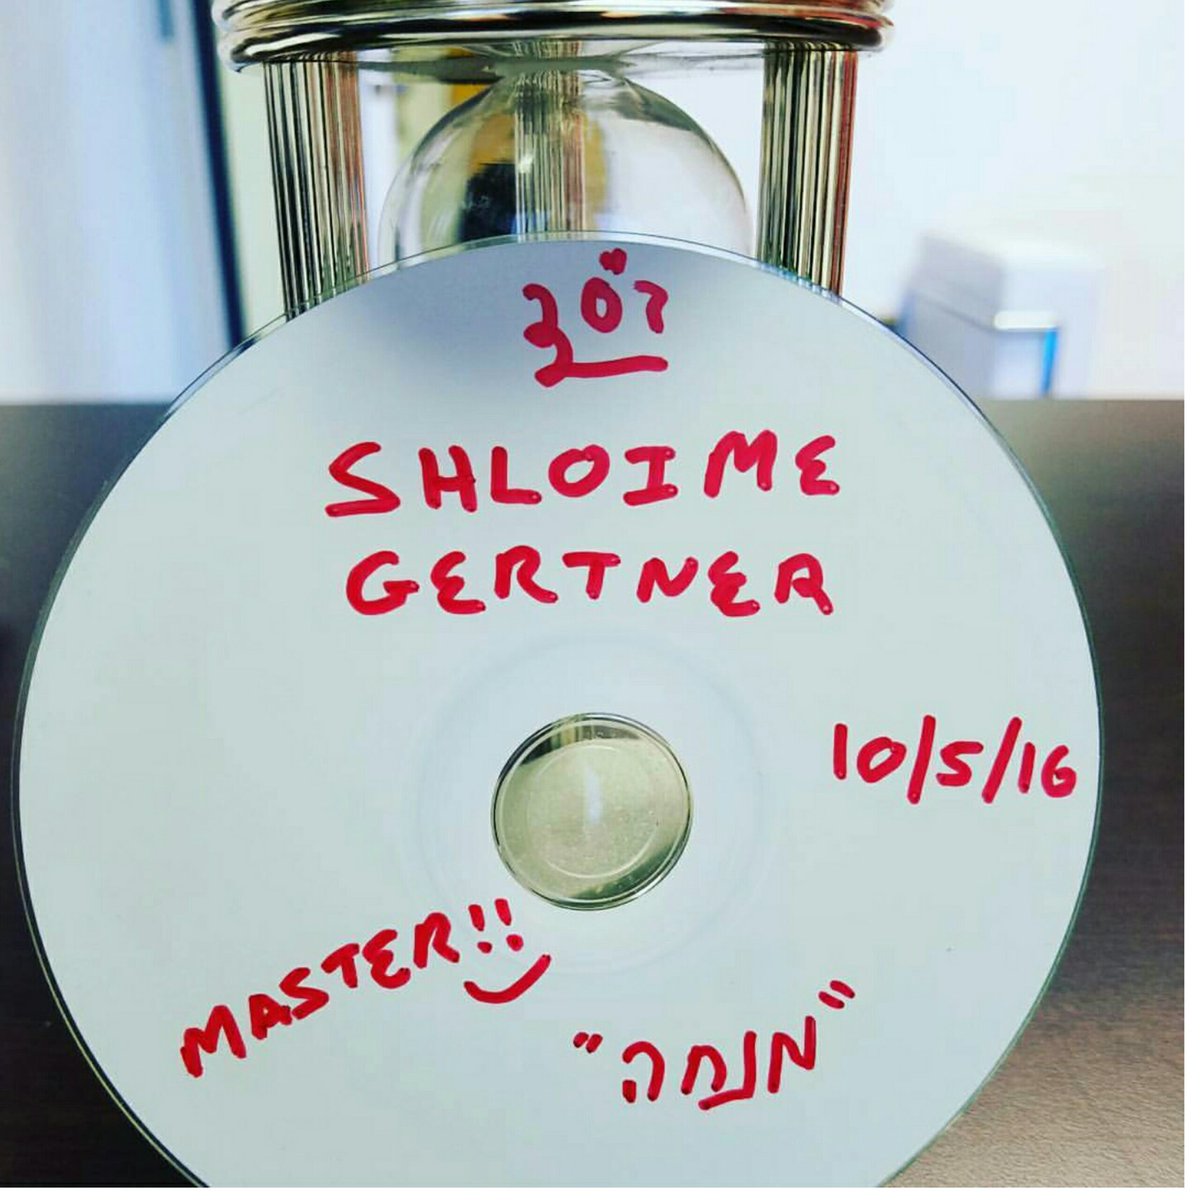 בס"ד
SHLOIME
GERTNER
10/5/16
MASTER!!
"מנחה"